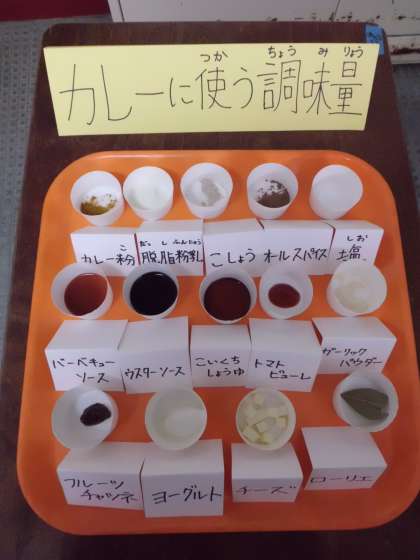 つか ちょう み りょう
カレーに使う調味量
こ
カレー粉
だっ し ふんにゅう
脱脂粉乳
こしょう
オールスパイス
しお
塩
バーベキュー
ソース
ウスターソース
こいくち
しょうゆ
トマト
ピューレ
ガーリック
パウダー
フルーツ
チャツネ
ヨーグルト
チーズ
ローリエ